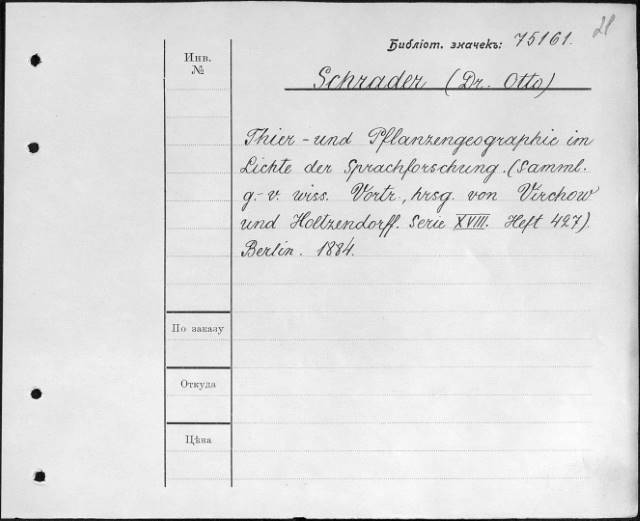 21
Библіот. значекъ: 75161.
Инв.
№
Schrader (Dr. Otto)
Thier- und Pflanzengeographie im
Lichte der Sprachforschung. (Samml.
g.-v. wiss. Vortr., hrsg. von Virchow
und Holtzendorff. Serie XVIII. Heft 427).
Berlin. 1884.
По заказу
Откуда
Цѣна